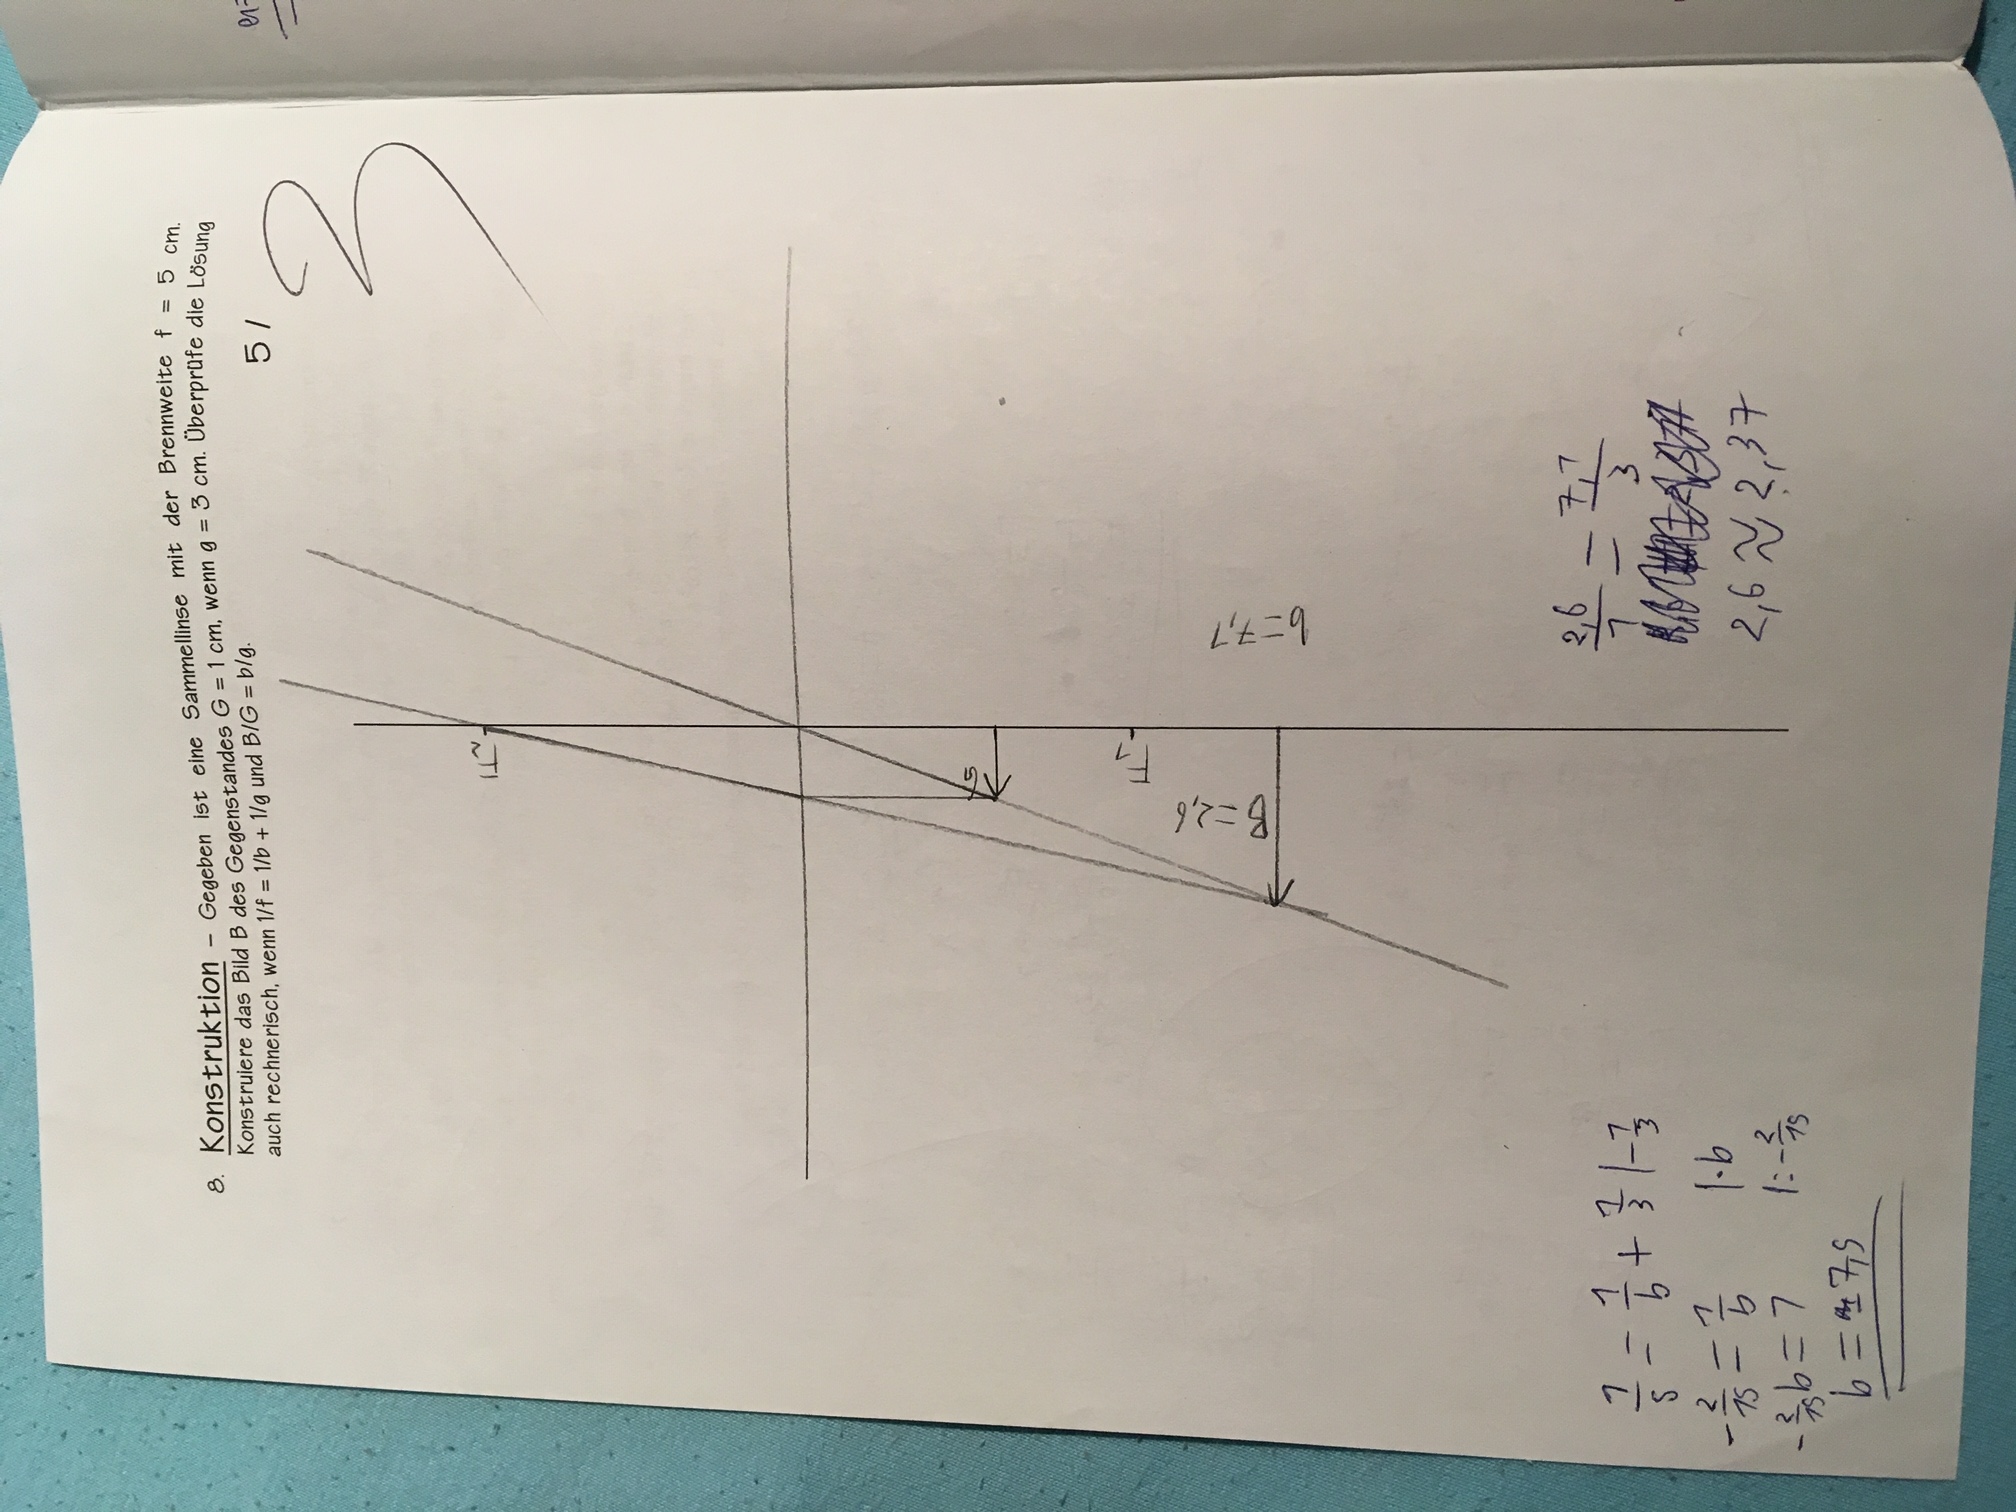 8. Konstruktion – Gegeben ist eine Sammellinse mit der Brennweite f = 5 cm.
Konstruiere das Bild B des Gegenstandes G = 1 cm, wenn g = 3 cm. Überprüfe die Lösung
auch rechnerisch, wenn 1/f = 1/b + 1/g und B/G = b/g.
5 /
3
F₂
G
F₁
B = 2,6
b = 7,1
1/5 = 1/b + 1/3 |-1/3
-2/15 = 1/b |·b
-2/15 b = 1 |:-2/15
b = -7,5
2,6/1 = 7,1/3
2,6 ≈ 2,37